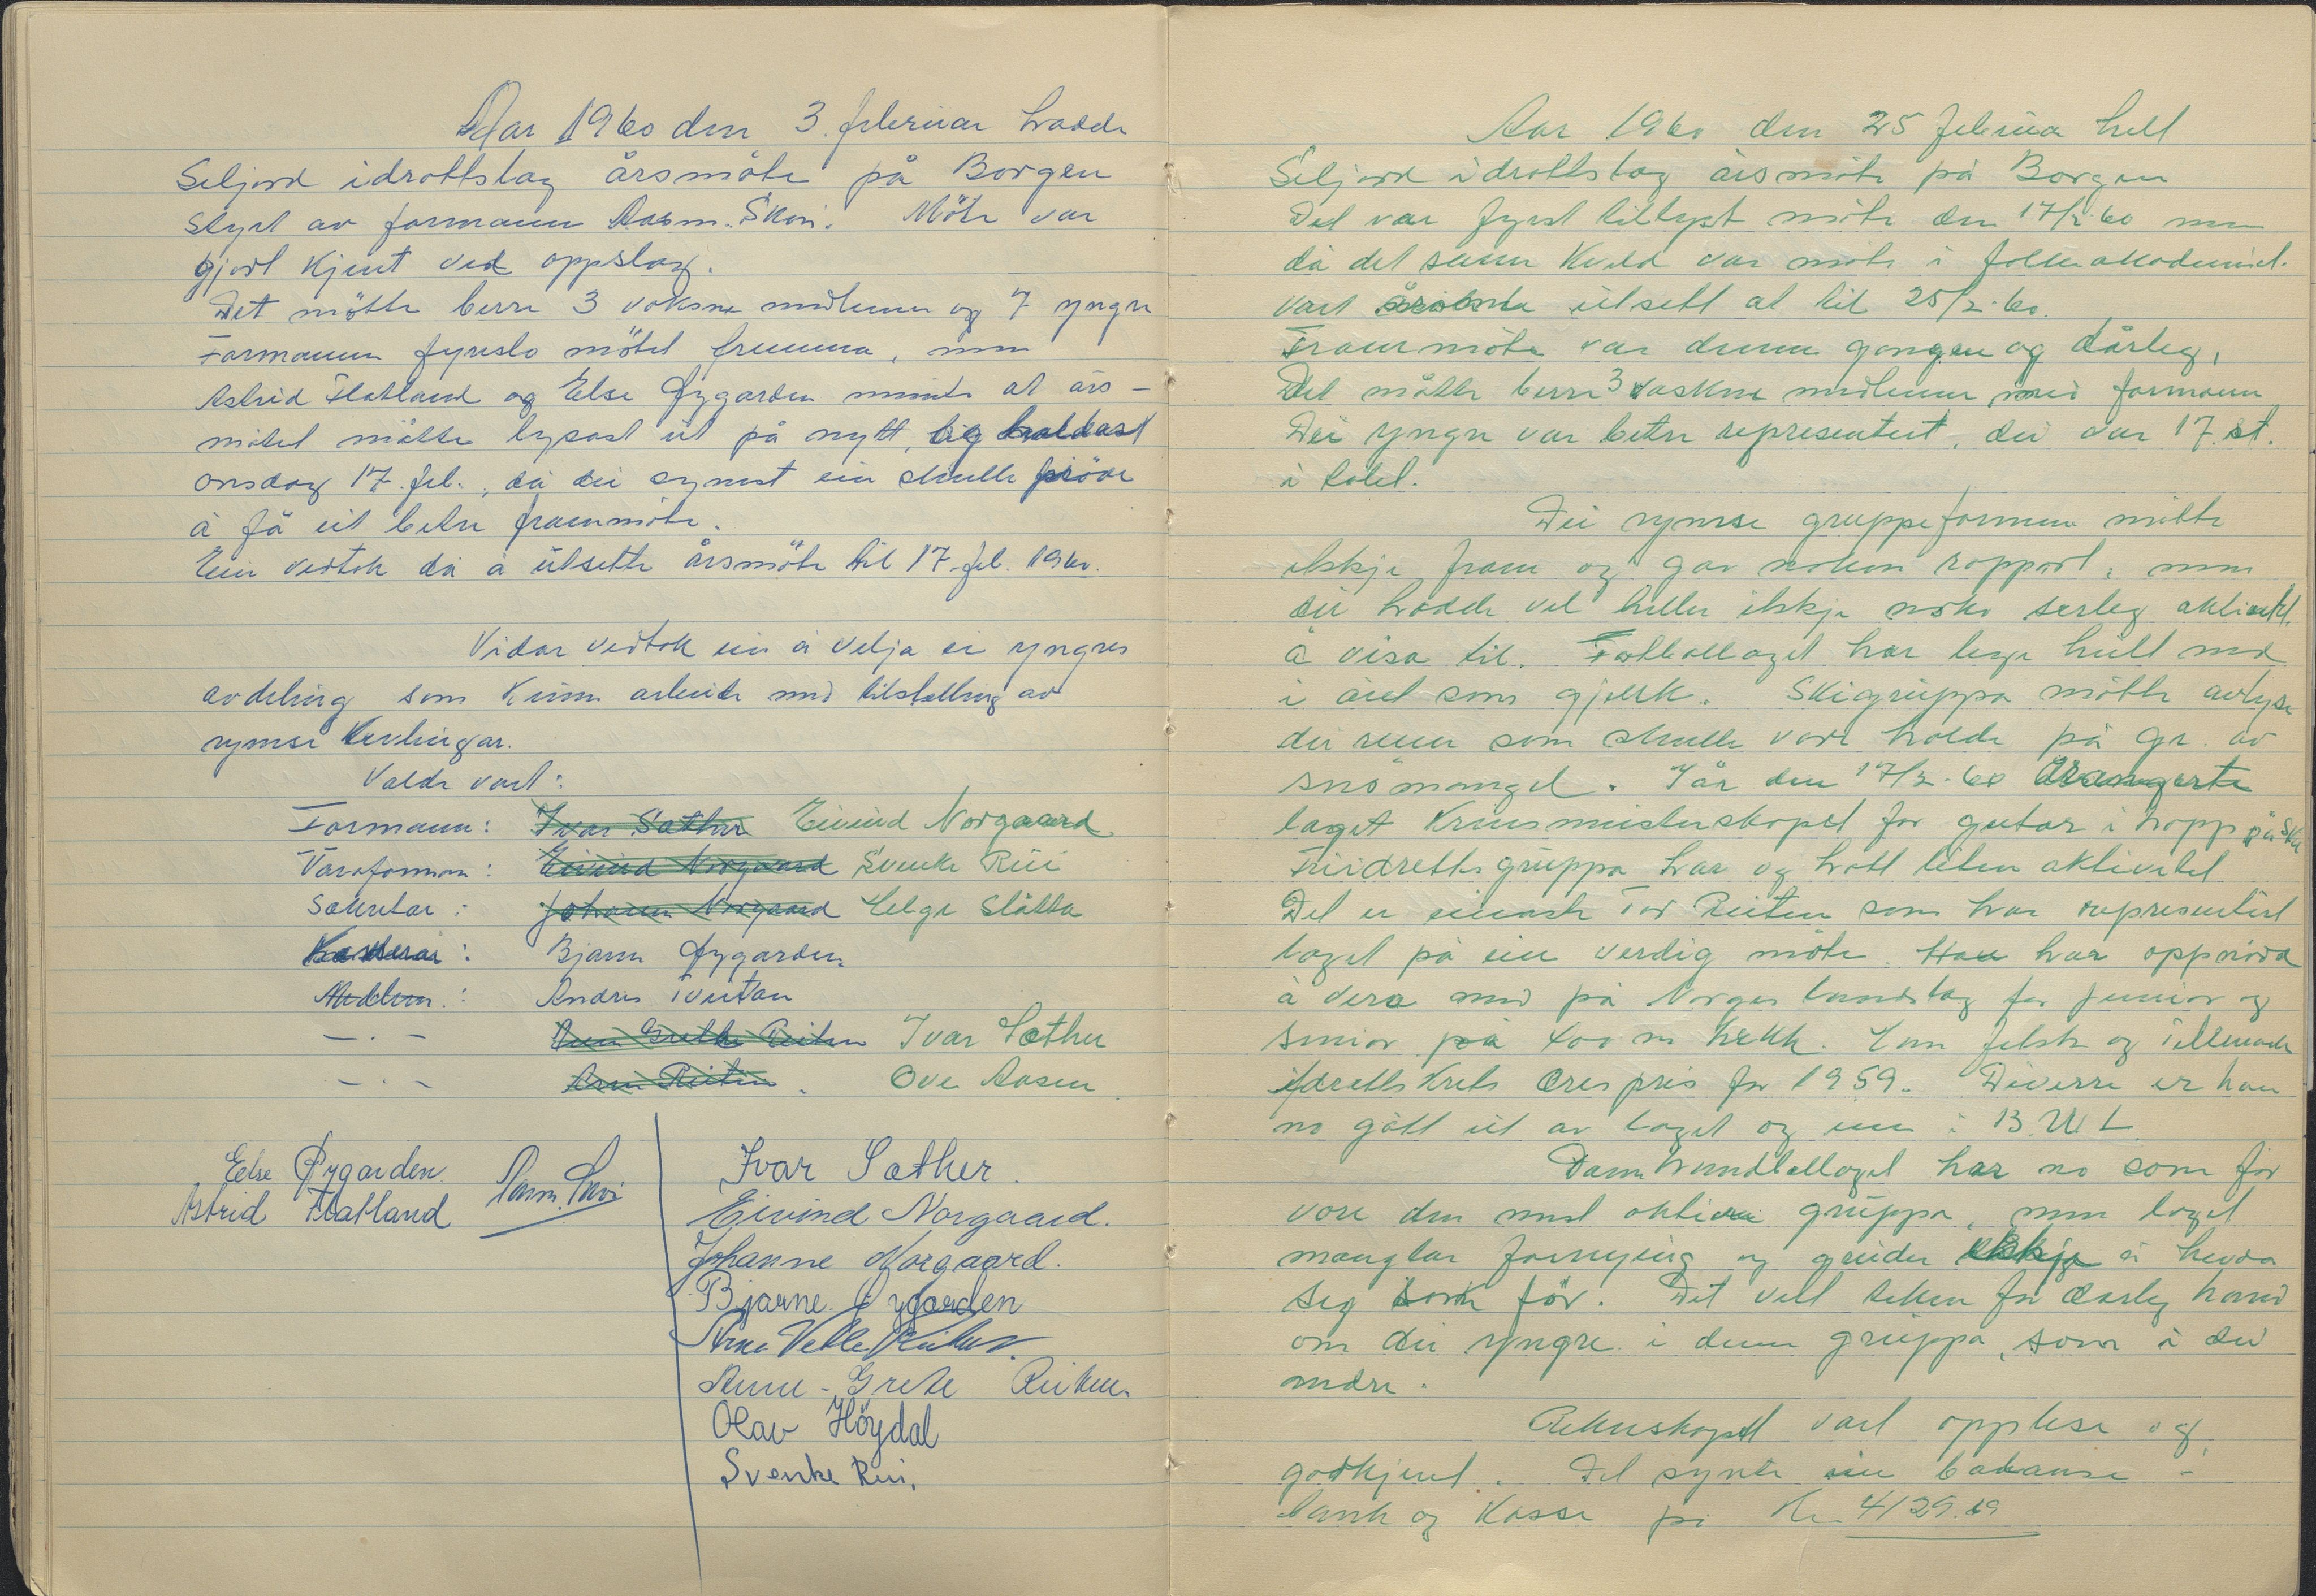 Aar 1960 den 3. februar hadde
Seljord idrottslag årsmöte på Borgen
styrt av formann Aasm. Skori. Möte var
gjort kjent ved oppslag.
Det mötte berre 3 voksne medlemer og 7 yngre
Formannen fyreslo mötet fremma, men
Astrid Flatland og Else Øygarden meinte at års-
mötet måtte lysast ut på nytt, og haldast
onsdag 17. feb., då dei synest ein skulle pröve
å få eit betre frammöte.
Ein vedtok då å utsette årsmöte til 17. feb. 1960.
Vidar vedtok ein å velja ei yngres
avdeling som kunne arbeide med tilstelling av
ymse kevlingar.
Valde vart:
Formann: Ivar Sæther Eivind Norgaard
Varaformann: Eivind Norgaard Svenke Rui
Sekretær: Johanne Norgaard Helge Slåtta
Kasserar: Bjarne Øygarden
Medlem: Andres Tveitan
-.- Anne Grethe Reiten Ivar Sæther
-.- Arne Reiten. Ove Aasen
Else Øygarden
Astrid Flatland
Aasm. Skori
Ivar Sæther.
Eivind Norgaard.
Johanne Norgaard.
Bjarne Øygarden
Arne Vetle Reiten.
Anne-Grete Reiten.
Olav Höydal
Svenke Rui.
Aar 1960 den 25 februa helt
Seljord idrottslag årsmöte på Borgen
Det var fyrst tillyst möte den 17/2-60 men
då det samme kveld var möte i folkeakademiet.
vart årsmöte utsett at til 25/2-60.
Frammöte var denne gongen og dårleg,
Det mötte berre 3 vaskne medlemer med formann
Dei yngre var betre representert, dei var 17. st.
i talet.
Dei ymse gruppeformenn mötte
ikkje fram og gav nokon rapport, men
dei hadde vel heller ikkje noko serleg aktivitet
å visa til. Fotballaget har lege heilt nede
i året som gjekk. Skigruppa måtte avlyse
dei renn som skulle vore halde på gr. av
snömangel. I år den 17/2-60 arangerte
laget Krinsmeisterskapet for gutar i hopp på ski
Friidrettsgruppa har og hatt liten aktivitet
Det er einaste Tor Reiten som har representert
laget på ein verdig måte. Han har oppnådd
å vera med på Norges landslag for junior og
senior på 400 m hekk. Han fekk og Telemark
Idrettskrets Ærespris for 1959. Diverre er han
no gått ut av laget og inn i B.U.L
Damehandballaget har no som för
vore den mest aktive gruppa, men laget
manglar fornying og greider ikkje å hevda
seg som för. Det vert teken for dårleg hand
om dei yngre i denne gruppa, som i dei
andre.
Rekneskapet vart opplese og
godkjent. Det synte ein balanse i
bank og kasse på kr 4129.69